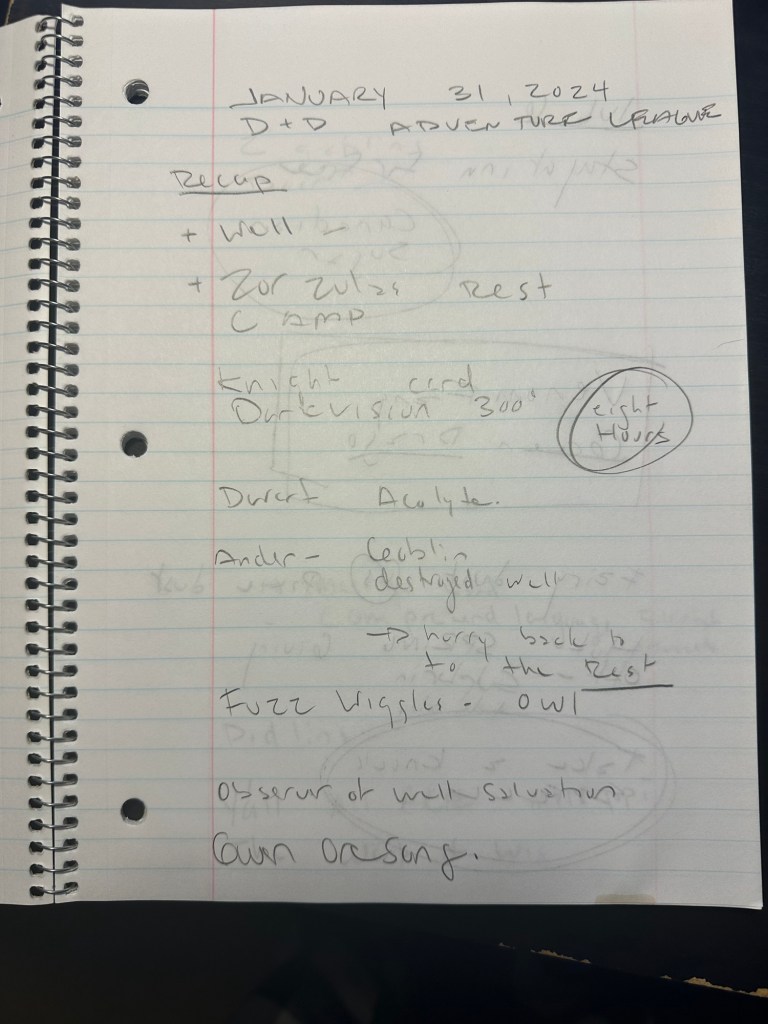 JANUARY 31, 2024
D+D ADVENTURE LEAGUE
Recap
+ Well -
+ Zor zulas Rest
CAMP
Knight card
Darkvision 300'
eight
Hours
Dwarf Acolyte.
Ander - Goblin
destroyed well
→ hurry back to
to the Rest
Fuzz Wiggles - OWl
Observer of well salvation